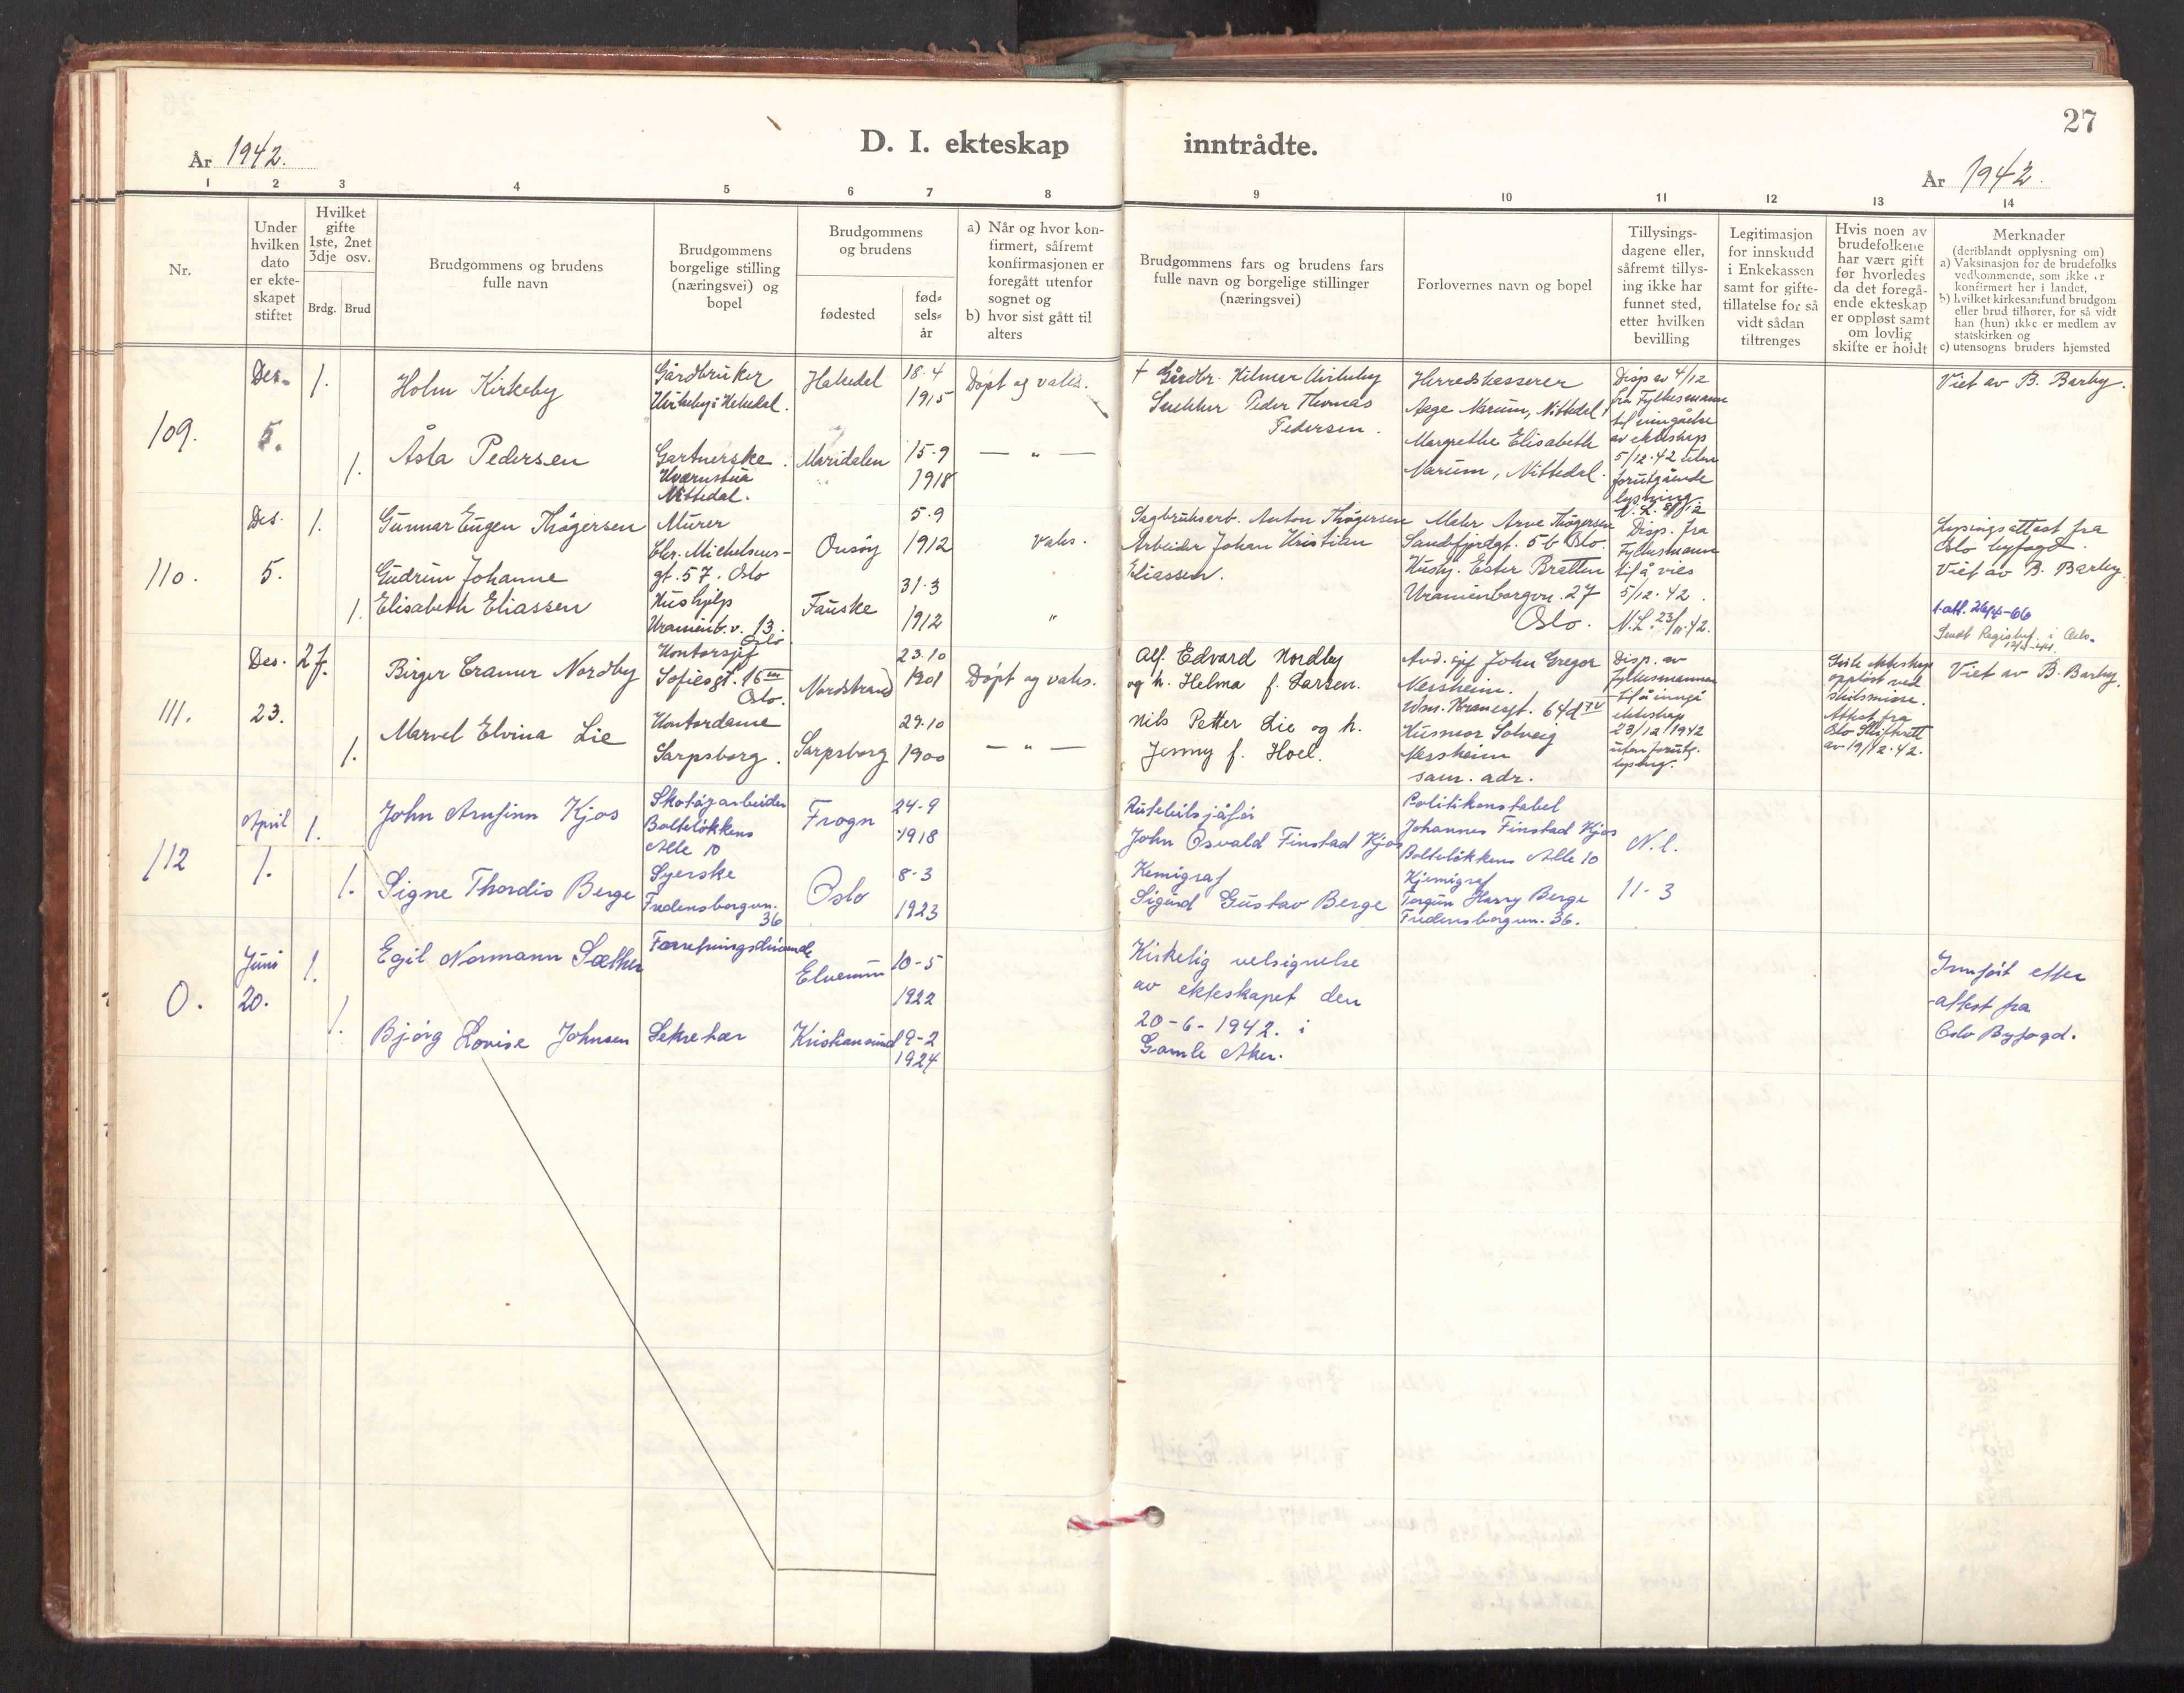 27
D. I. ekteskap inntrådte.
År 1942.
År 1942.
1 2 3 4 5 6 7 8 9 10 11 12 13 14
Nr.
Under
hvilken
dato
er ekte-
skapet
stiftet
Hvilket
gifte
1ste, 2net
3dje osv.
Brdg. Brud
Brudgommens og brudens
fulle navn
Brudgommens
borgelige stilling
(næringsvei) og
bopel
Brudgommens
og brudens
fødested
fød-
sels-
år
a) Når og hvor kon-
firmert, såfremt
konfirmasjonen er
foregått utenfor
sognet og
b) hvor sist gått til
alters
Brudgommens fars og brudens fars
fulle navn og borgelige stillinger
(næringsvei)
Forlovernes navn og bopel
Tillysings-
dagene eller,
såfremt tillys-
ing ikke har
funnet sted,
etter hvilken
bevilling
Legitimasjon
for innskudd
i Enkekassen
samt for gifte-
tillatelse for så
vidt sådan
tiltrenges
Hvis noen av
brudefolkene
har vært gift
før hvorledes
da det foregå-
ende ekteskap
er oppløst samt
om lovlig
skifte er holdt
Merknader
(deriblandt opplysning om)
a) Vaksinasjon for de brudefolks
vedkommende, som ikke er
konfirmert her i landet,
b) hvilket kirkesamfund brudgom
eller brud tilhører, for så vidt
han (hun) ikke er medlem av
statskirken og
c) utensogns bruders hjemsted
109.
Des.
5.
1.
1.
Holm Kirkeby
Åsta Pedersen
Gårdbruker
Kirkeby i Hakedal.
Gartnerske.
Kvernstua
Nittedal.
Hakedal
Maridalen
18-4
1915
15-9
1918
Døpt og vaks.
— " —
† Gårdbr. Hilmar Kirkeby
Snekker Peder Thomas
Pedersen.
Herredskasserer
Aage Narum, Nittedal
Margrethe Elisabeth
Narum, Nittedal.
Disp av 4/12
fra Fylkesmann
til inngåelse
av ekteskap
5/12-42 uten
forutgående
lysning.
Viet av B. Barby.
110.
Des.
5.
1.
1.
Gunnar Eugen Thøgersen
Gudrun Johanne
Elisabeth Eliassen
Murer
Chr. Michelsens-
gt. 57. Oslo
Hushjelp
Uranienb.v. 13.
Oslo
Onsøy
Fauske
5-9
1912
31-3
1912
vaks.
"
Sagbruksarb. Anton Thøgersen
Arbeider Johan Kristian
Eliassen.
Maler Arve Thøgersen
Sandefjordgt. 5 b Oslo.
Hushj. Ester Bratten
Uranienborgvn. 27
Oslo.
Disp. fra
Fylkesmann
til å vies
5/12-42.
N.L. 23/11-42.
Lysingsattest fra
Oslo byfogd.
Viet av B. Barby.
Sendt Registref. i Oslo
111.
Des.
23.
2
1.
Birger Cramer Nordby
Marvel Elvina Lie
Kontorsjef
Sofiesgt. 16 III
Oslo.
Kontordame
Sarpsborg.
Nordstrand
Sarpsborg
23.10
1901
29.10
1900
Døpt og vaks.
— " —
Alf. Edvard Nordby
og h. Helma f. Larsen.
Nils Petter Lie og h.
Jenny f. Hoel.
Avd. sjef John Gregor
Nessheim.
Wm. Thranesgt. 64d IV
Husmor Solveig
Nessheim
sam. adr.
Disp. av
Fylkesmannen
til å inngå
ekteskap
23/12 1942
uten forutg.
lysing.
Siste ekteskap
oppløst ved
skilsmisse.
Attest fra
Oslo Skifterett
av 19/12-42.
Viet av B. Barby.
112
April
1.
1.
1.
John Arnfinn Kjos
Signe Thordis Berge
Skotøyarbeider
Bolteløkkens
Alle 10
Syerske
Fredensborgvn.
36
Frogn
Oslo
24-9
1918
8-3
1923
Rutebilsjåfør
John Osvald Finstad Kjos
Kemigraf
Sigurd Gustav Berge
Politikonstabel
Johannes Finstad Kjos
Bolteløkkens Alle 10
Kjemigraf
Torgrim Harry Berge
Fredensborgvn. 36.
N.l.
11-3
0.
Juni
20.
1.
1.
Egil Normann Sæther
Bjørg Lovise Johnsen
Forretningsdrivende
Sekretær
Elverum
Kristiansund
10-5
1922
19-2
1924
Kirkelig velsignelse
av ekteskapet den
20-6-1942. i
Gamle Aker.
Innført efter
attest fra
Oslo Byfogd.